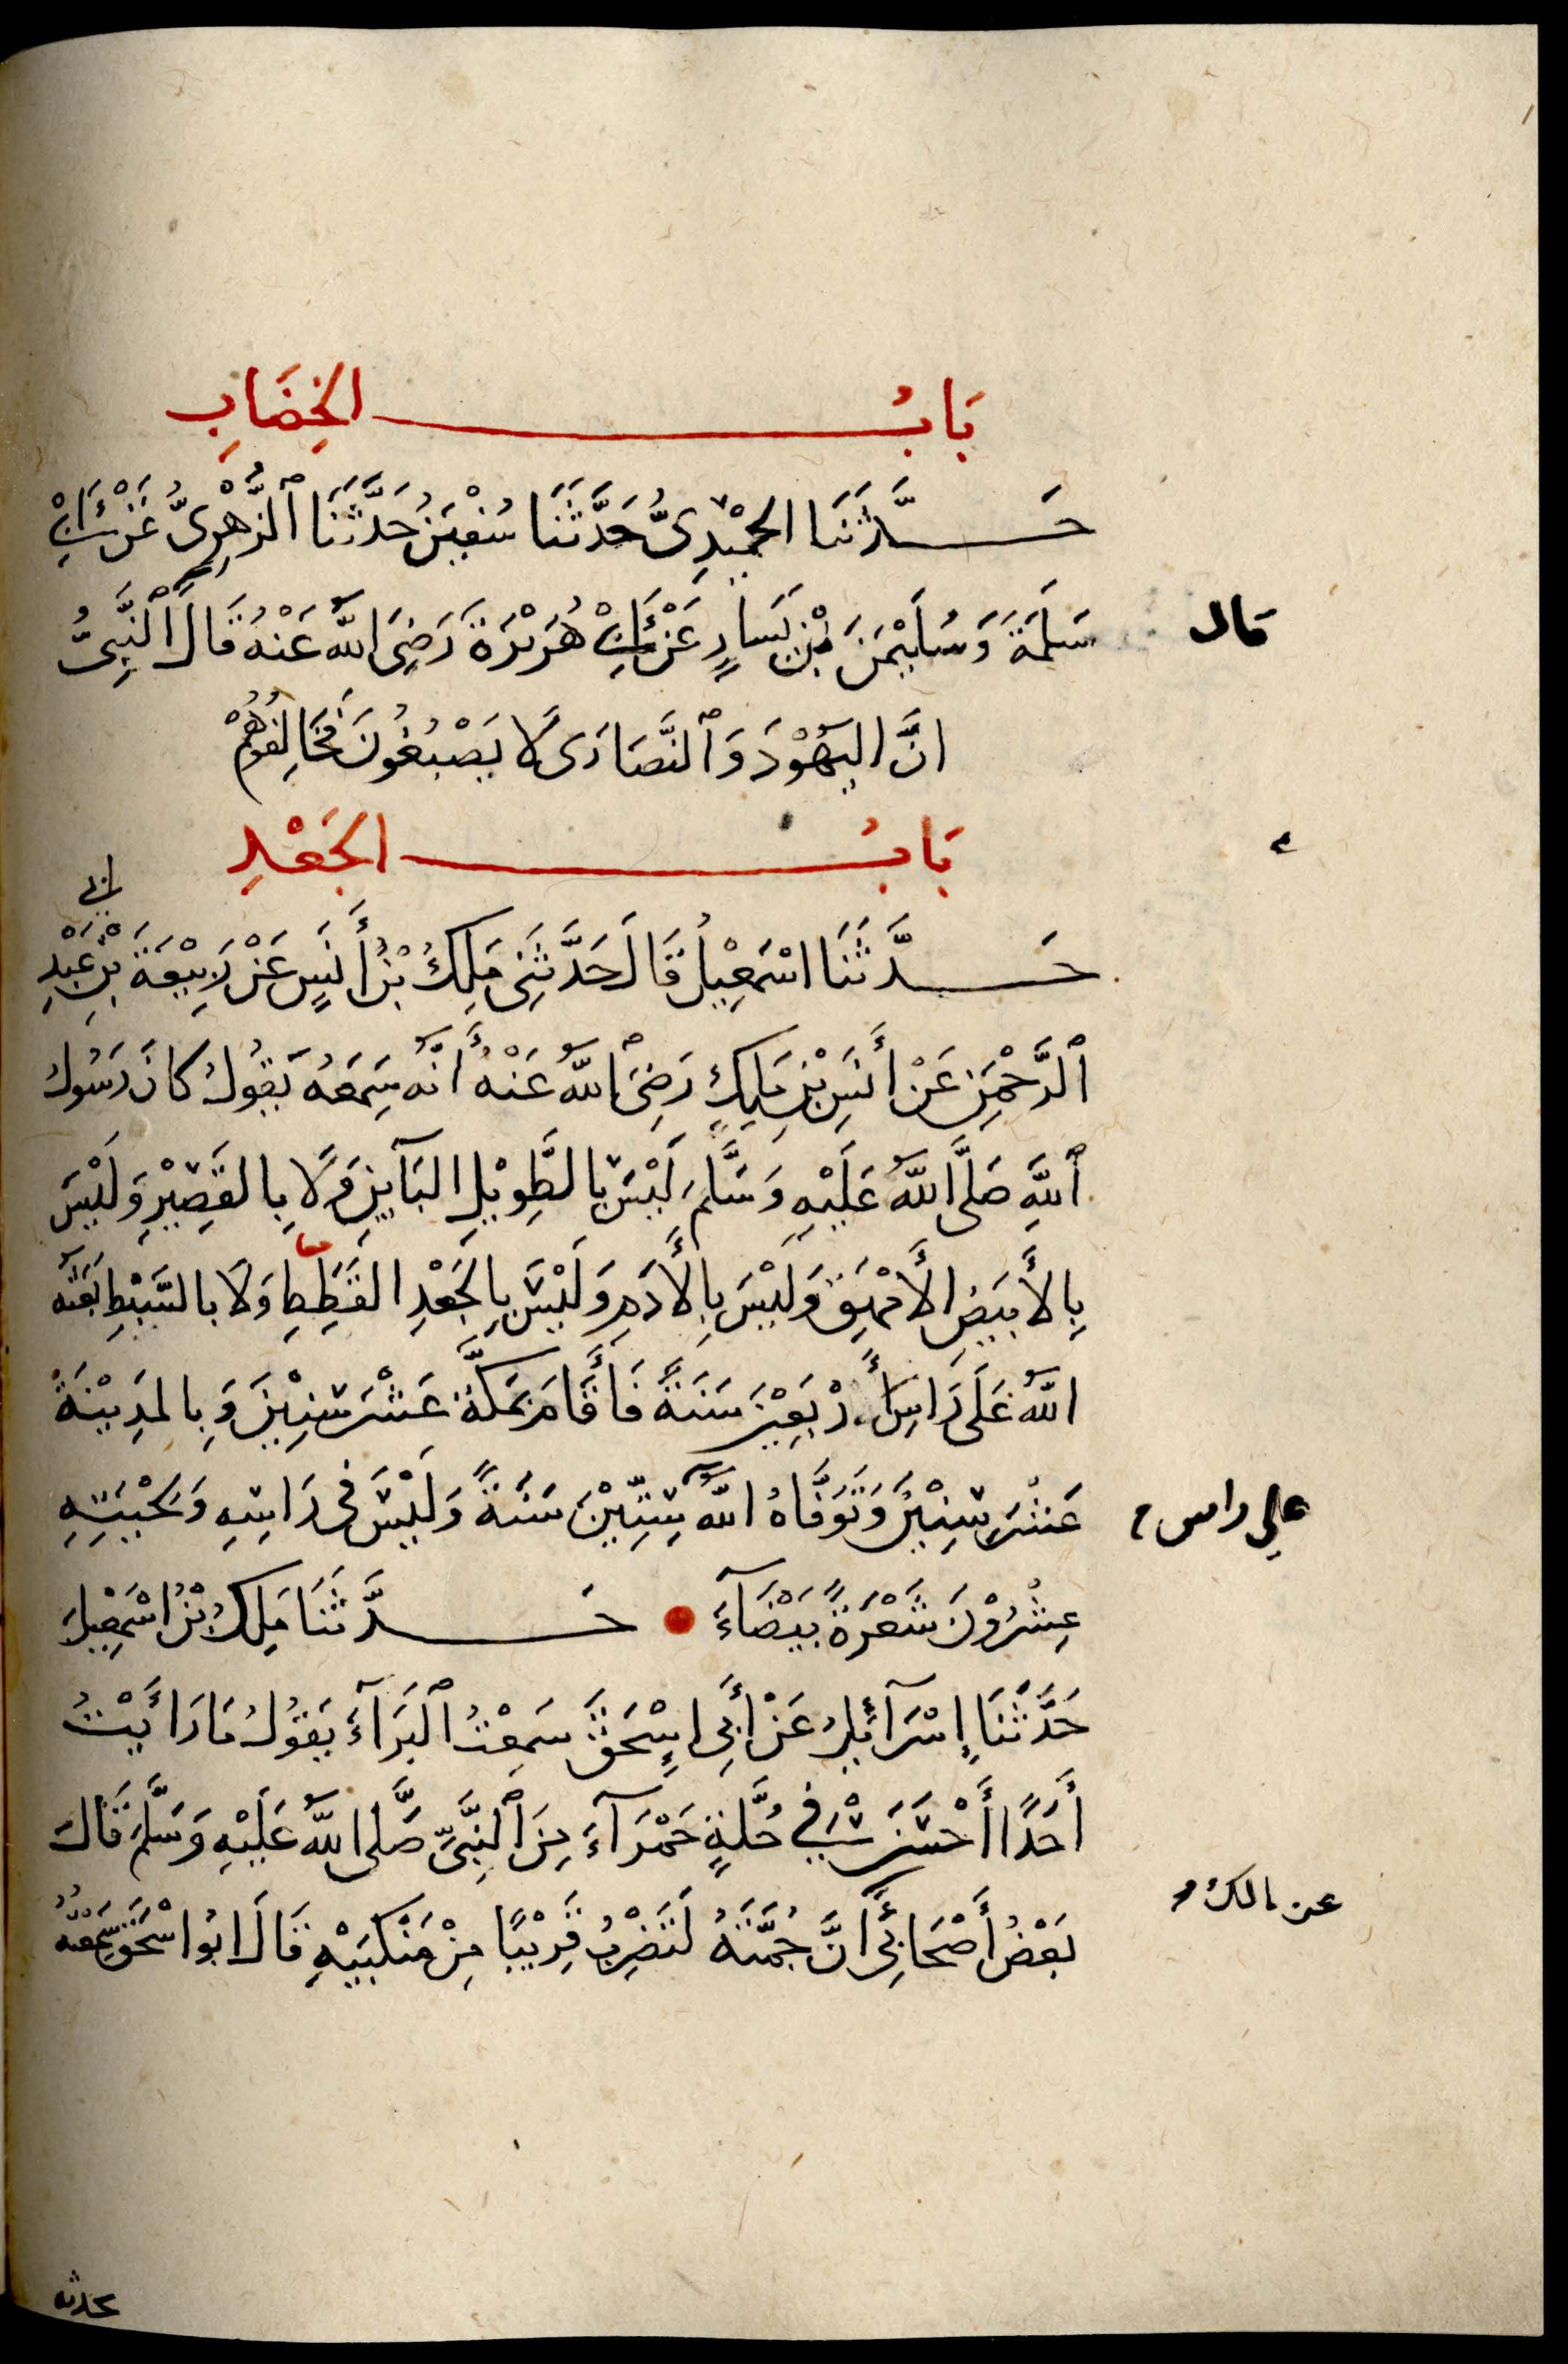 بَابُ الخِضَابِ
حَدَّثَنَا الحُمَيْدِىُّ حَدَّثَنَا سُفْيَنُ حَدَّثَنَا ٱلزُّهْرِىُّ عَنْ أَبِىْ
سَلَمَةَ وَسُلَيْمَنَ بْنِ يَسَارٍ عَنْ أَبِىْ هُرَيْرَةَ رَضِىَ اللّٰهُ عَنْهُ قَالَ ٱلنَّبِىُّ
قال
انَّ اليَهُوْدَ وَٱلنَّصَارَى لَا يَصْبُغُونَ فَخَالِفُوهُمْ
بَابُ الجَعْدِ
حَدَّثَنَا اسْمَعِيلُ قَالَ حَدَّثَنِى مَلِكُ بْنُ أَنَسٍ عَنْ رَبِيْعَةَ بْنِ عَبْدِ
ٱلرَّحْمَنِ عَنْ أَنَسِ بْنِ مَلِكٍ رَضِىَ ٱللّٰهُ عَنْهُ أَنَّهُ سَمِعَهُ يَقُولُ كَانَ رَسُولُ
ٱللّٰهِ صَلَّى اللّٰهُ عَلَيْهِ وَسَلَّمَ لَيْسَ بِالطَّوِيْلِ البَآيِنِ وَلَا بِالقَصِيْرِ وَلَيْسَ
بِالأَبْيَضِ الأَمْهَقِ وَلَيْسَ بِالأَدَمِ وَلَيْسَ بِالجَعْدِ القَطَطِ وَلَا بِالسَّبْطِ بَعَثَهُ
اللّٰهُ عَلَى رَاسِ أَرْبَعِيْنَ سَنَةً فَأَقَامَ بِمَكَّةَ عَشْرَ سِنِيْنَ وَبِالمَدِيْنَةِ
عَشْرَ سِنِيْنَ وَتَوَفَّاهُ اللّٰهُ سِتِّيْنَ سَنَةً وَلَيْسَ فِى رَاسِهِ وَلِحْيَتِهِ
على راس
عِشْرُوْنَ شَعْرَةً بَيْضَآءَ • حَدَّثَنَا مَلِكُ بْنُ اسْمَعِيلَ
حَدَّثَنَا إِسْرَآئِيلُ عَنْ أَبِى إِسْحَقَ سَمِعْتُ ٱلبَرَآءَ يَقُولُ مَا رَأَيْتُ
أَحَدًا أَحْسَنَ فِي حُلَّةٍ حَمْرَآءَ مِنَ ٱلنَّبِىِّ صَلَّى اللّٰهُ عَلَيْهِ وَسَلَّمَ قَالَ
بَعْضُ أَصْحَابِى عن مالك أَنَّ جُمَّتَهُ لَتَضْرِبُ قَرِيْبًا مِنْ مَنْكِبَيْهِ قَالَ ابُوا سْحَقَ سَمِعْتُهُ
يحدثه